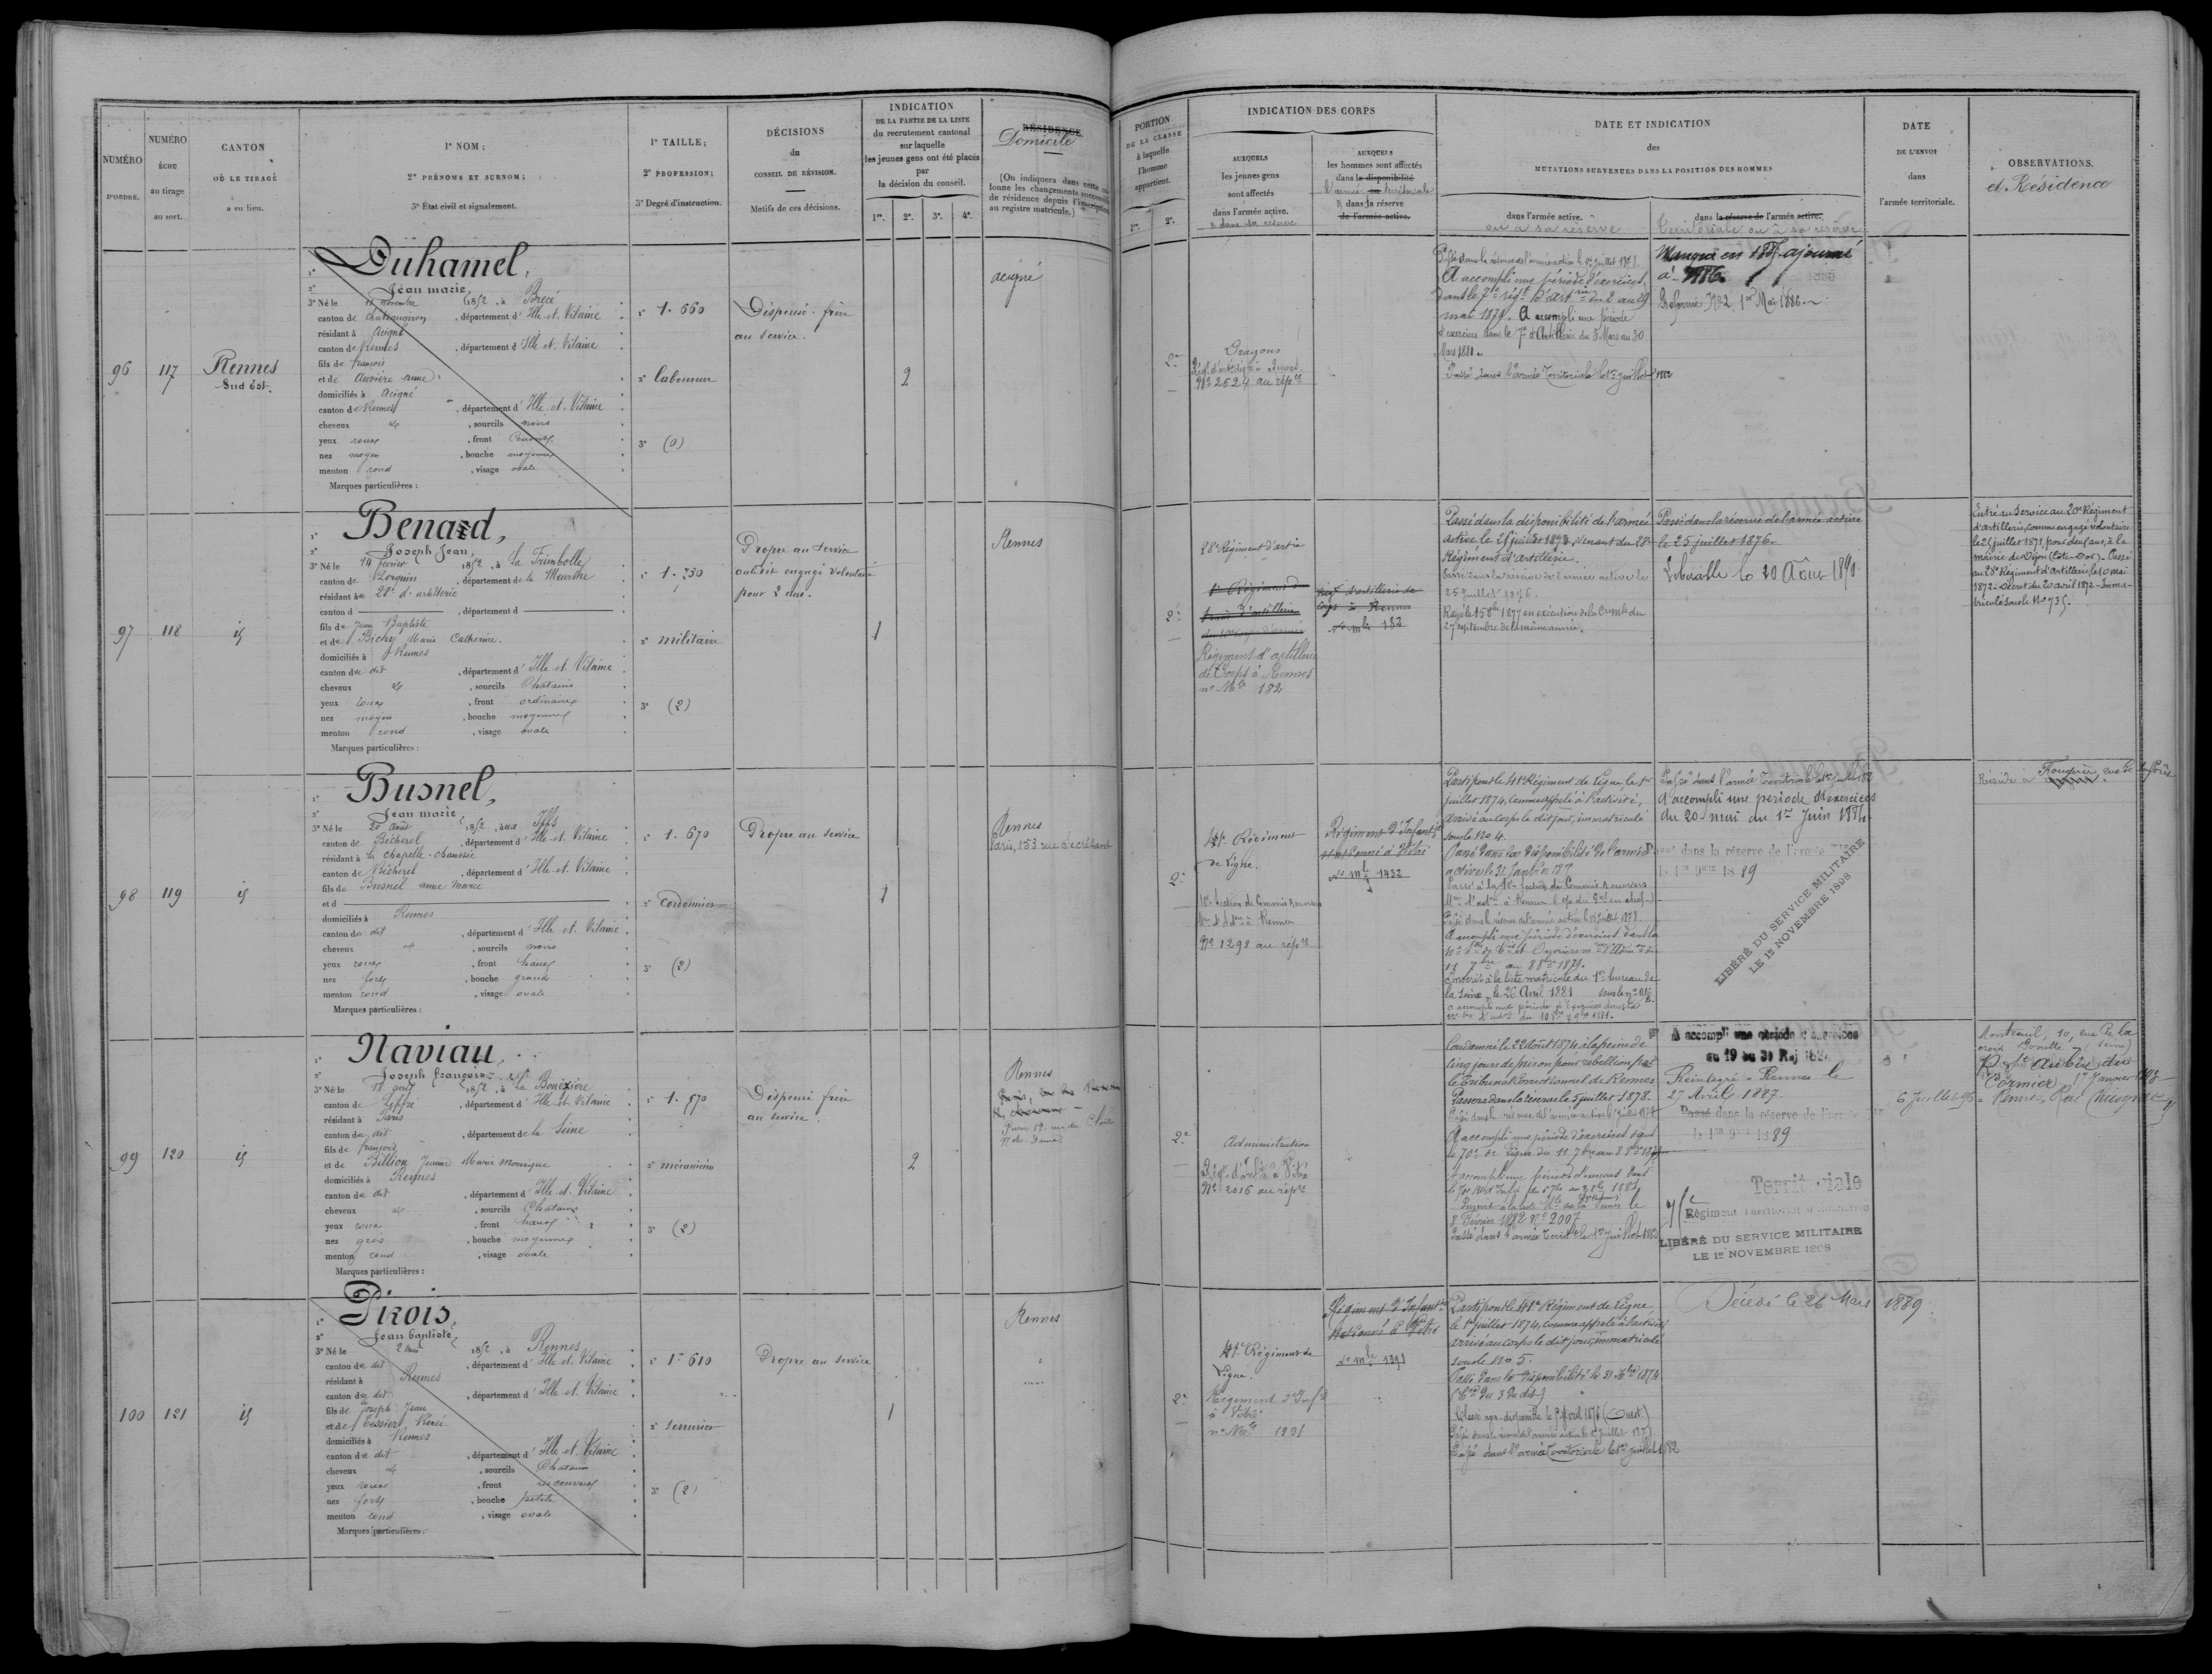 NUMÉRO
D'ORDRE.
NUMÉRO
ÉCHU
au tirage
au sort.
CANTON
OÙ LE TIRAGE
a eu lieu.
1° NOM ;
2° PRÉNOMS ET SURNOM ;
3° État civil et signalement.
1° TAILLE ;
2° PROFESSION ;
3° Degré d'instruction.
DÉCISIONS
du
CONSEIL DE RÉVISION.
Motifs de ces décisions.
INDICATION
DE LA PARTIE DE LA LISTE
du recrutement cantonal
sur laquelle
les jeunes gens ont été placés
par
la décision du conseil.
1re. 2e. 3e. 4e.
RÉSIDENCE
Domicile
(On indiquera dans cette co-
lonne les changements successifs
de résidence depuis l'inscription
au registre matricule.)
PORTION
DE LA CLASSE
à laquelle
l'homme
appartient.
1re. 2e.
INDICATION DES CORPS
AUXQUELS
les jeunes gens
sont affectés
dans l'armée active.
AUXQUELS
les hommes sont affectés
dans la disponibilité
l'armée ou territoriale
dans la réserve
de l'armée active.
DATE ET INDICATION
des
MUTATIONS SURVENUES DANS LA POSITION DES HOMMES
dans l'armée active.
ou à sa réserve
dans la réserve de l'armée active.
Territoriale ou à sa réserve
DATE
DE L'ENVOI
dans
l'armée territoriale.
OBSERVATIONS.
et Résidence
96
117
Rennes
Sud est.
1° Duhamel,
2° Jean marie,
3° Né le 11 novembre 1852, à Brécé
canton de Chateaugiron, département d'Ille-et-Vilaine
résidant à Acigné
canton de Rennes, département d'Ille et Vilaine
fils de françois
et de Auvière anne
domiciliés à Acigné
canton de Rennes, département d'Ille-et-Vilaine
cheveux et, sourcils noirs
yeux roux, front
nez moyen, bouche moyenne
menton rond, visage ovale
Marques particulières :
1° 1. 660
2° laboureur
3° (0)
Dispensé. frère
au service.
2
acigné
2e
Dragons
Nº 2524 au rép
Passé dans la réserve de l'armée active le 1er juillet 1878.
A accompli une période d'exercices
dans le 7e régt d'artrie du 2 au 29
mai 1879. A accompli une période
d'exercices dans le 7e d'Artillerie du 3 Mars au 30
Mars 1881.
Passé dans l'armée Territoriale le 1er juillet 1882
Manqué en 1885 ajourné
à 1886
Réformé Nº 2 1er Mai 1886.
97
118
id
1° Benard,
2° Joseph Jean,
3° Né le 14 février 1852, à La Frimbolle
canton de Lorquin, département de la Meurthe
résidant au 28e d'artillerie
canton d, département d
fils de Jean Baptiste
et de Bichy Marie Catherine.
domiciliés à Rennes
canton du dit, département d'Ille-et-Vilaine
cheveux et, sourcils Chatains
yeux roux, front ordinaire
nez moyen, bouche moyenne
menton rond, visage ovale
Marques particulières :
1° 1. 730
2° militaire
3° (2)
Propre au service
ou dit engagé volontaire
pour 2 ans.
1
Rennes
2e
28e Régiment d'artie
1er Régiment du
train d'artillerie
du 10e corps d'armée
Régiment d'artillerie
de Corps à Rennes
nº Mle 182
Régt d'artillerie de
Corps à Rennes
Nº mle 182
Passé dans la disponibilité de l'armée
active le 25 juillet 1873, venant du 28e
Régiment d'artillerie.
Passé dans la réserve de l'armée active le
25 juillet 1876.
Rayé le 15 8bre 1877 en exécution de la Circre du
27 septembre de la même année.
Passé dans la réserve de l'armée active
le 25 juillet 1876
Libérable le 20 Août 1890
Entré au Service au 20e Régiment
d'artillerie, comme engagé volontaire
le 25 juillet 1871, pour deux ans, à la
mairie de Dijon (Côte-d'or). Passé
au 28e Régiment d'Artillerie, le 10 mai
1872. Décret du 20 avril 1872. Imma-
triculé sous le Nº 735.
98
119
id
1° Busnel,
2° Jean marie,
3° Né le 20 Août 1852, aux Iffs
canton de Bécherel, département d'Ille-et-Vilaine
résidant à la chapelle-chaussée
canton de Bécherel, département d'Ille-et-Vilaine
fils de Busnel anne marie
et d
domiciliés à Rennes
canton du dit, département d'Ille-et-Vilaine
cheveux et, sourcils noirs
yeux roux, front haut
nez fort, bouche grande
menton rond, visage ovale
Marques particulières :
1° 1. 670
2° Cordonnier
3° (2)
Propre au service
1
Rennes
Paris, 153 rue Secrétant
2e
41e Régiment
de Ligne.
10e Section de Commis & ouvriers
à Rennes
Nº 1298 au rép
Régiment d'Infantie
stationné à Vitré
Nº mle 1432
Parti pour le 41e Régiment de Ligne, le 1er
juillet 1874, comme appelé à l'activité,
arrivé au corps le dit jour, immatriculé
sous le Nº 4.
Passé dans la disponibilité de l'armée
active le 31
Passé à la 10e Section de Commis & ouvriers
Passé dans la réserve de l'armée active le 1er juillet 1878.
A accompli une période d'exercices dans la
au 8 8bre 1879.
Inscrit à la liste matricule du 1er bureau de
la Seine le 26 Avril 1881 sous le nº
Passé dans l'armée Territoriale le 1er juillet 188
A accompli une période d'exercices
du 20 mai du 1er Juin 1884
Passé dans la réserve de l'armée
le 1er 9bre 1889
LIBÉRÉ DU SERVICE MILITAIRE
LE 1er NOVEMBRE 1898
Réside à Fougère
99
120
id
1° Naviau,
2° Joseph françois
3° Né le 18 avril 1852, à La Bouëxière
canton de Liffré, département d'Ille-et-Vilaine
résidant à Paris
canton du dit, département de la Seine
fils de françois
et de Billion Jeanne Marie Monique
domiciliés à Rennes
canton du dit, département d'Ille-et-Vilaine
cheveux et, sourcils Chatains
yeux roux, front haut
nez gros, bouche moyenne
menton rond, visage ovale
Marques particulières :
1° 1. 570
2° mécanicien
3° (2)
Dispensé frère
au service.
2
Rennes
Paris, 19. rue du Cloitre
N. Dame.
2e
Administration
Régt d'Infie à Vitré
Nº 2016 au répre
Condamné le 22 août 1874 à la peine de
Cinq jours de prison pour rébellion par
le Tribunal Correctionnel de Rennes
Passera dans la réserve le 5 juillet 1878.
A accompli une période d'exercices dans
le 70e de ligne du 11 7bre au 8 8bre 1879
A accompli une période d'exercices dans
8 Février 1882 Nº 2007
Passé dans l'armée Territle le 1er juillet 188
A accompli une période d'exercices
du 19 au 31 Mai 188
Réintégré à Rennes le
27 Avril 1887
Passé dans la réserve de l'armée
le 1er 9bre 1889
Territoriale
Régiment Territorial d'Infanterie
LIBÉRÉ DU SERVICE MILITAIRE
LE 1er NOVEMBRE 1898
Montreuil, 10, rue de la
St Aubin du
Cormier, 17 Janvier
6 Juillet 96 Rennes Rue
100
121
id
1° Pirois,
2° Jean baptiste
3° Né le 2 mai 1852, à Rennes
canton du dit, département d'Ille-et-Vilaine
résidant à Rennes
canton du dit, département d'Ille-et-Vilaine
fils de Joseph Jean
et de Tessier, Renée
domiciliés à Rennes
canton du dit, département d'Ille-et-Vilaine
cheveux et, sourcils Chatains
yeux roux, front découvert
nez fort, bouche petite
menton rond, visage ovale
Marques particulières :
1° 1. 610
2° Serrurier
3° (2)
Propre au service
1
Rennes
2e
41e Régiment de
Ligne.
Régiment d'Infie
à Vitré
nº Mle 1391
Régiment d'Infantie
stationné à Vitré
Nº mle 1391
Parti pour le 41e Régiment de Ligne
le 1er juillet 1874, comme appelé à l'activité
arrivé au corps le dit jour, immatriculé
sous le Nº 5.
Passé dans la disponibilité le 31 Xbre 1874
Classé non-disponible le 5 Avril 1876 (Ouest)
Passé dans la réserve de l'armée active le 1er juillet 187
Passé dans l'armée Territoriale le 1er juillet 1882
Décédé le 26 Mars 1889